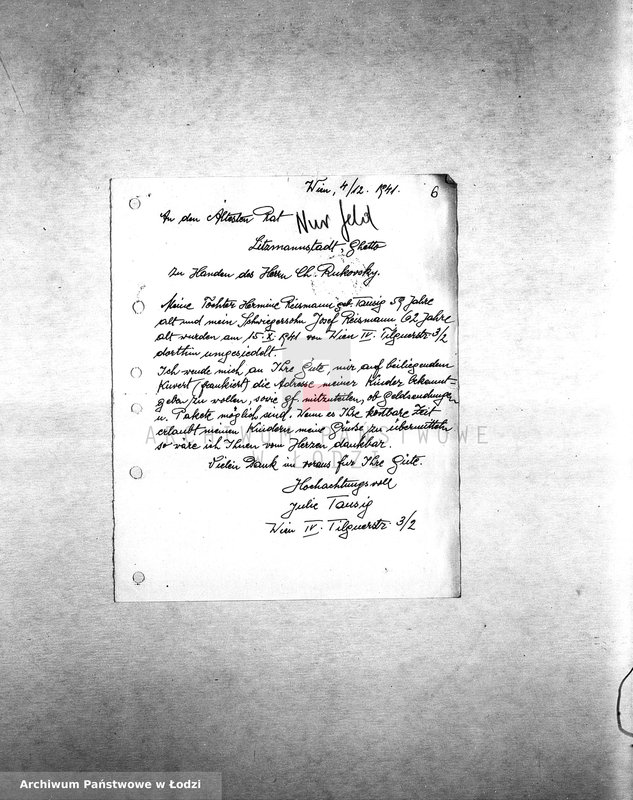 Wien, 4/12. 1941.
6
An den Ältesten Rat
Nur Geld
Litzmannstadt, Ghetto
zu Handen des Herrn Ch. Rukovsky.
Meine Tochter Hermine Reismann geb. Tausig 59 Jahre
alt und mein Schwiegersohn Josef Reismann 62 Jahre
alt wurden am 15. X 1941 von Wien IV. Tilgnerstr 3/2
dorthin umgesiedelt.
Ich wende mich an Ihre Güte, mir auf beiliegendem
Kuvert (frankiert) die Adresse meiner Kinder bekannt-
geben zu wollen, sowie gf. mitzuteilen, ob Geldsendungen
u. Pakete möglich sind. Wenn es Ihre kostbare Zeit
erlaubt meinen Kindern meine Grüße zu übermitteln
so wäre ich Ihnen vom Herzen dankbar.
Vielen Dank im voraus für Ihre Güte.
Hochachtungsvoll
Julie Tausig
Wien IV. Tilgnerstr 3/2
ARCHIWUM PAŃSTWOWE
W ŁODZI
Archiwum Państwowe w Łodzi